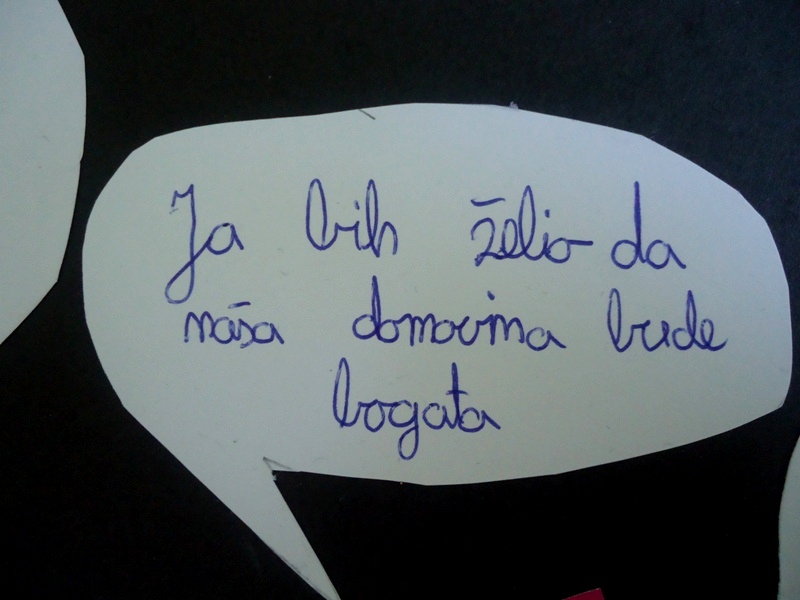 Ja bih želio da
naša domovina bude
bogata